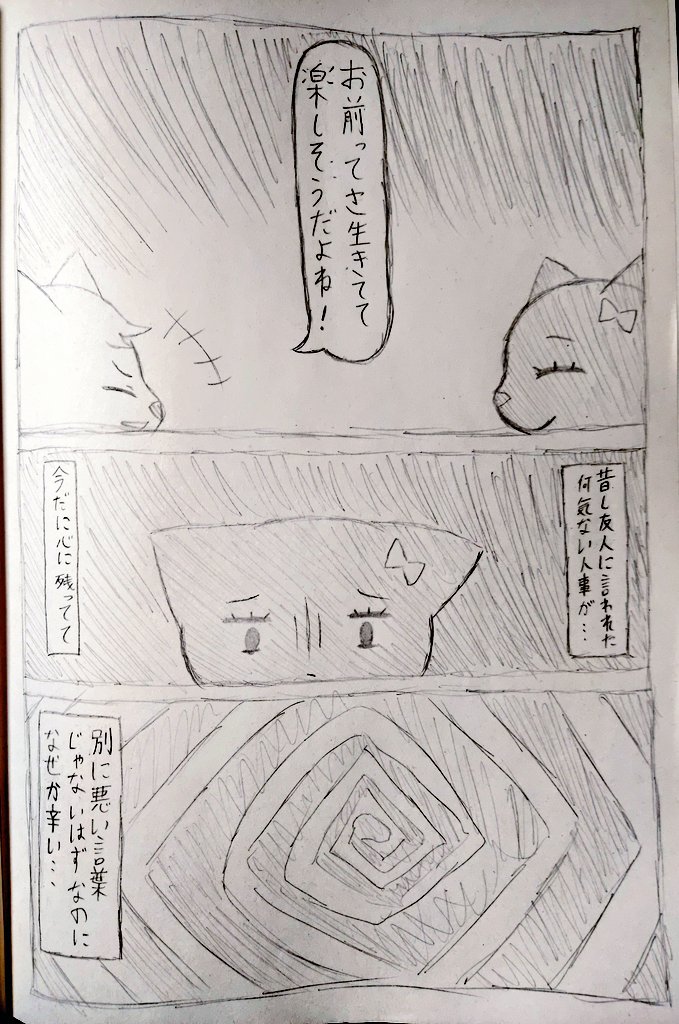 お前ってさ生きてて
楽しそうだよね！
昔し友人に言われた
何気ない人事が…
今だに心に残ってて
別に悪い言葉
じゃないはずなのに
なぜか辛い…